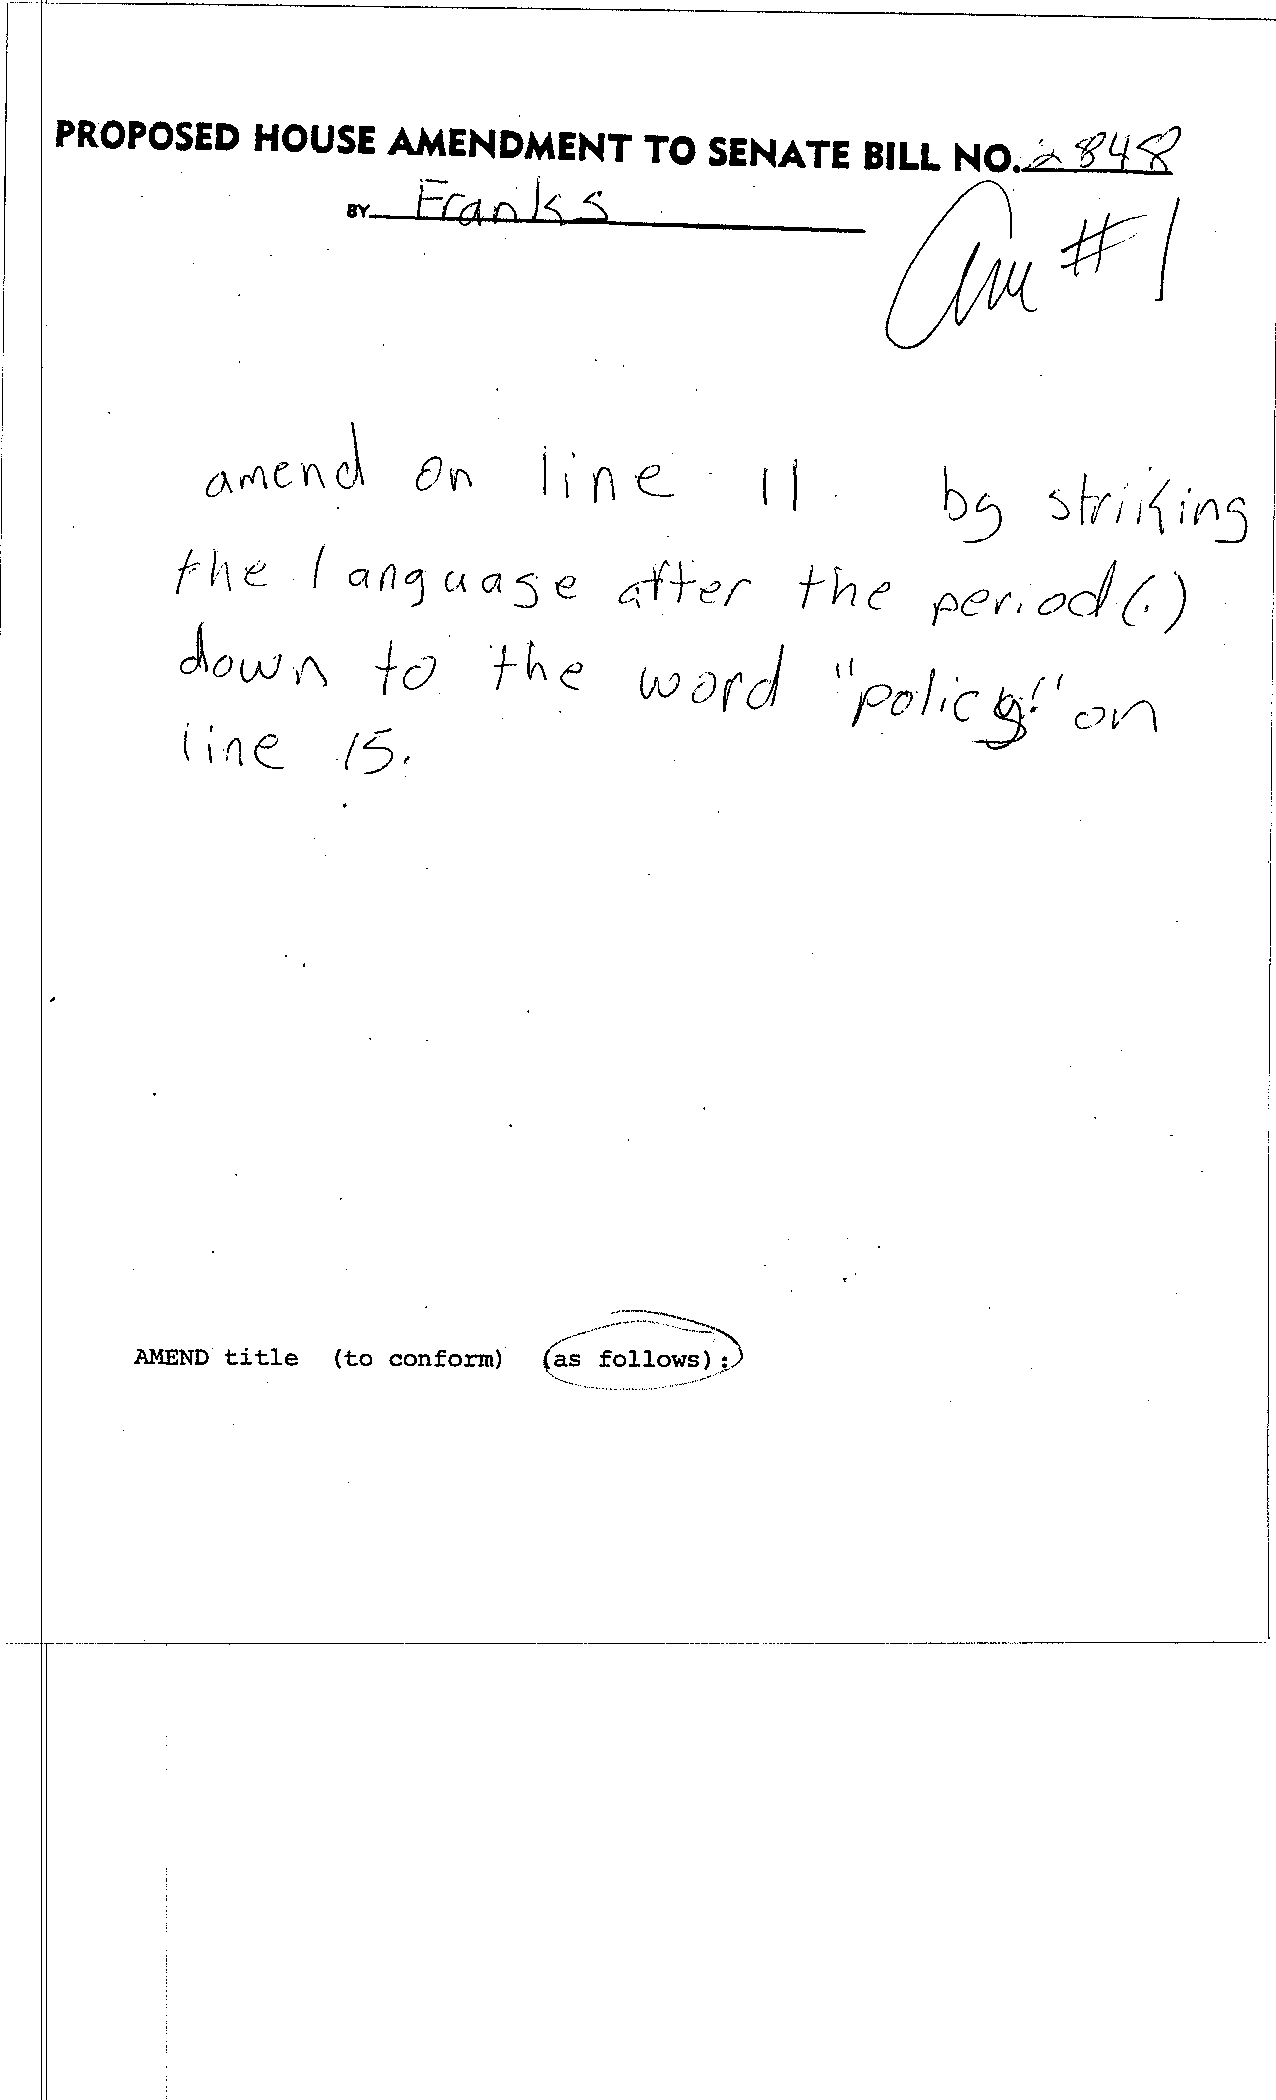 PROPOSED HOUSE AMENDMENT TO SENATE BILL NO. 2848
BY Franks
Am #1
amend on line 11 by striking
the language after the period (.)
down to the word "policy." on
line 15.
AMEND title (to conform) (as follows):